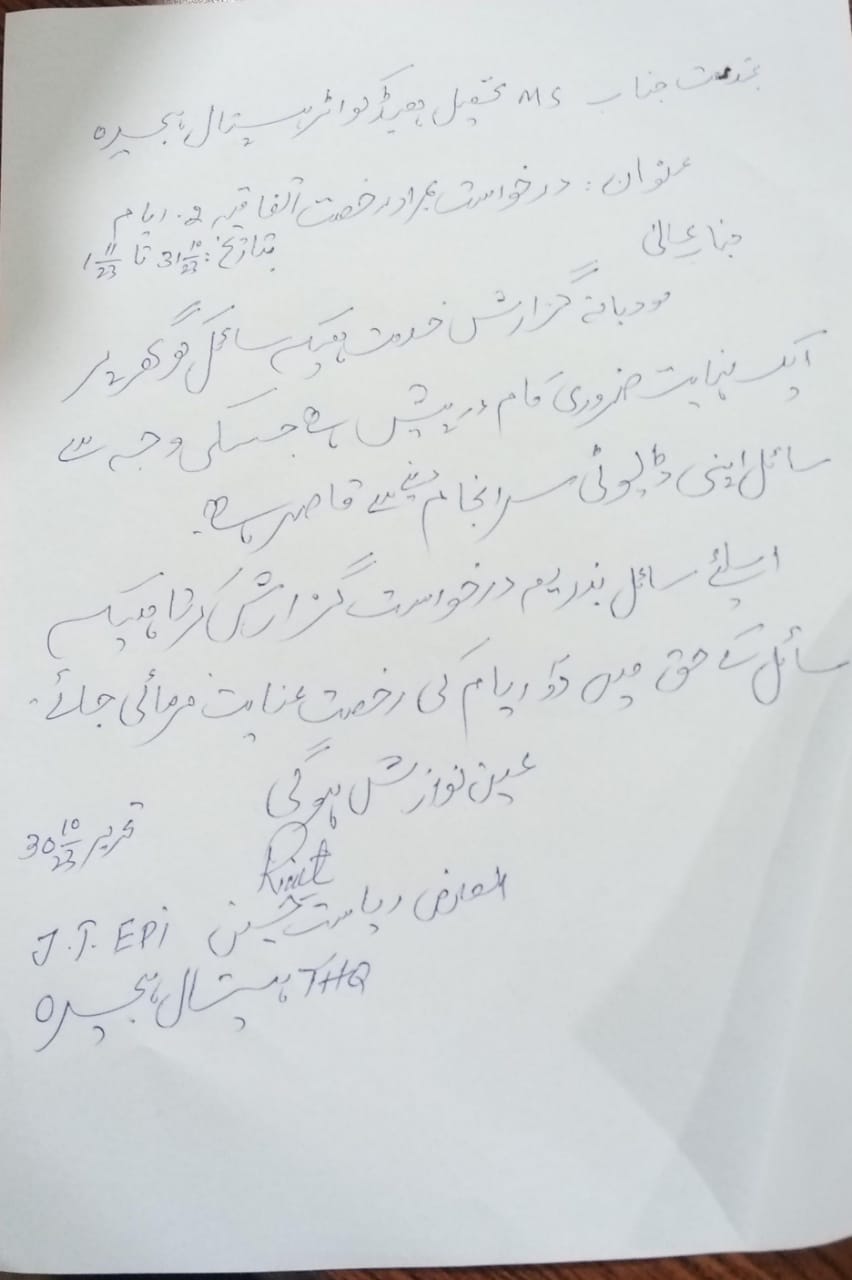 بخدمت جناب MS تحصیل ہیڈ کواٹر ہسپتال ہجیرہ
عنوان: درخواست بمراد رخصت اتفاقیہ 2 ایام
جناب عالی
بتاریخ: 31 10/23 تا 1 11/23
مودبانہ گزارش خدمت ہیکہ سائل کو گھر پر
ایک نہایت ضروری کام درپیش ہے جسکی وجہ سے
سائل اپنی ڈیوٹی سرانجام دینے سے قاصر ہے۔
اسلئے سائل بذریعہ درخواست گزارش کرتا ہیکہ
سائل کے حق میں دو ایام کی رخصت عنایت فرمائی جائے۔
عین نوازش ہوگی
تحریر 30 10/23
العارض ریاست حسین J.T. EPi
THQ ہسپتال ہجیرہ